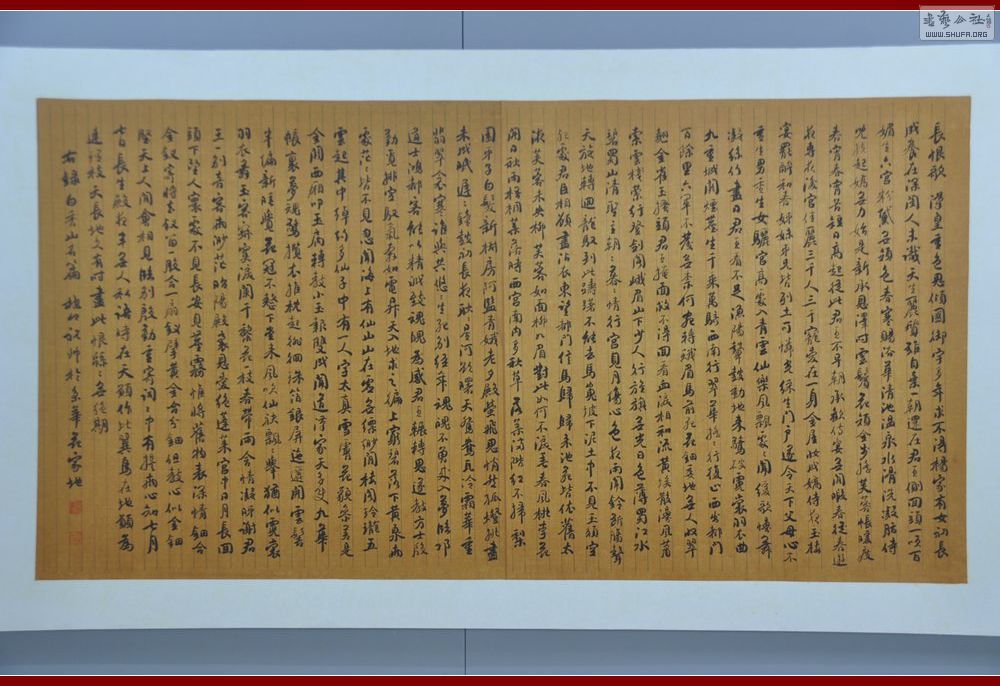 長恨歌 漢皇重色思傾國御宇多年求不得楊家有女初長
成養在深閨人未識天生麗質難自棄一朝選在君王側回頭一笑百
媚生六宮粉黛無顏色春寒賜浴華清池溫泉水滑洗凝脂侍
兒扶起嬌無力始是新承恩澤時雲鬢花顏金步搖芙蓉帳暖度
春宵春宵苦短日高起從此君王不早朝承歡侍宴無閒暇春從春遊
夜專夜後宮佳麗三千人三千寵愛在一身金屋妝成嬌侍夜玉樓
宴罷醉和春姊妹弟兄皆列土可憐光綵生門戶遂令天下父母心不
重生男重生女驪宮高處入青雲仙樂風飄處處聞緩歌慢舞
凝絲竹盡日君王看不足漁陽鼙鼓動地來驚破霓裳羽衣曲
九重城闕煙塵生千乘萬騎西南行翠華搖搖行復止西出都門
百餘里六軍不發無奈何宛轉蛾眉馬前死花鈿委地無人收翠
翹金雀玉搔頭君王掩面救不得回看血淚相和流黃埃散漫風蕭
索雲棧縈紆登劍閣峨嵋山下少人行旌旗無光日色薄蜀江水
碧蜀山清聖主朝朝暮暮情行宮見月傷心色夜雨聞鈴斷腸聲
天旋地轉迴龍馭到此躊躇不能去馬嵬坡下泥土中不見玉顏空
死處君臣相顧盡沾衣東望都門信馬歸歸來池苑皆依舊太
液芙蓉未央柳芙蓉如面柳如眉對此如何不淚垂春風桃李花
開日秋雨梧桐葉落時西宮南內多秋草落葉滿階紅不掃梨
園弟子白髮新椒房阿監青娥老夕殿螢飛思悄然孤燈挑盡
未成眠遲遲鐘鼓初長夜耿耿星河欲曙天鴛鴦瓦冷霜華重
翡翠衾寒誰與共悠悠生死別經年魂魄不曾來入夢臨邛
道士鴻都客能以精誠致魂魄為感君王輾轉思遂教方士殷
勤覓排空馭氣奔如電升天入地求之遍上窮碧落下黃泉兩
處茫茫皆不見忽聞海上有仙山山在虛無縹緲間樓閣玲瓏五
雲起其中綽約多仙子中有一人字太真雪膚花貌參差是
金闕西廂叩玉扃轉教小玉報雙成聞道漢家天子使九華
帳裏夢魂驚攬衣推枕起徘徊珠箔銀屏迤邐開雲鬢
半偏新睡覺花冠不整下堂來風吹仙袂飄飄舉猶似霓裳
羽衣舞玉容寂寞淚闌干梨花一枝春帶雨含情凝睇謝君
王一別音容兩渺茫昭陽殿裏恩愛絕蓬萊宮中日月長回
頭下望人寰處不見長安見塵霧惟將舊物表深情鈿合
金釵寄將去釵留一股合一扇釵擘黃金合分鈿但教心似金鈿
堅天上人間會相見臨別殷勤重寄詞詞中有誓兩心知七月
七日長生殿夜半無人私語時在天願作比翼鳥在地願為
連理枝天長地久有時盡此恨綿綿無絕期
右錄白香山長篇 於京華花家地
書藝公社
WWW.SHUFA.ORG